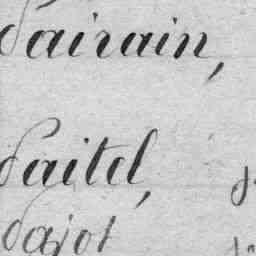 Pairain,
Paitel,
Pajot